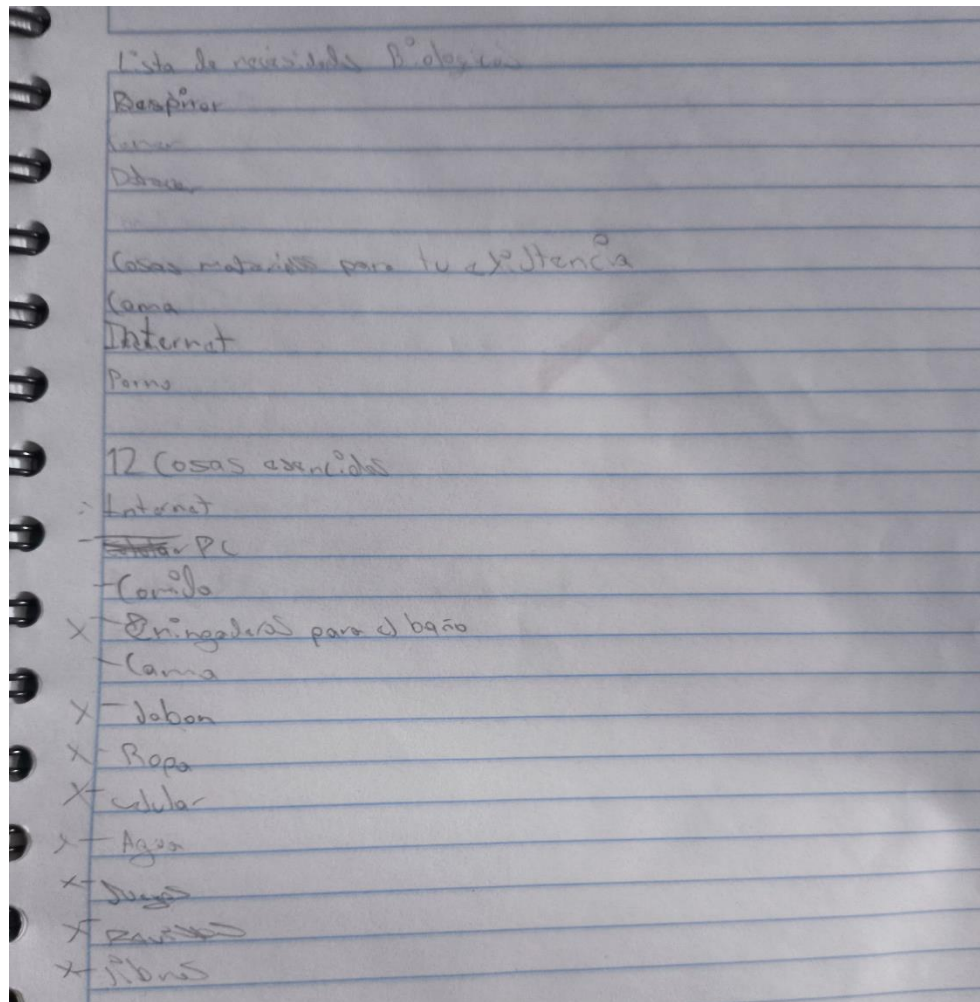 Lista de necesidades Biologicas
Respirar
Comer
Defecar
Cosas materiales para tu existencia
Cama
Internet
Porno
12 Cosas esenciales
- Internet
- PC
- Comida
X - Chingaderas para el baño
- Cama
X - Jabon
X - Ropa
X - celular
X - Agua
X - Juegos
X -
X - libros